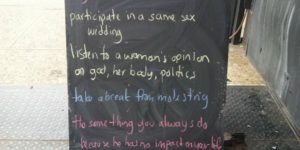 participate in a same sex
wedding
listen to a woman's opinion
on god, her body, politics
take a break from molesting
Do something you always do
because he has no impact on your life